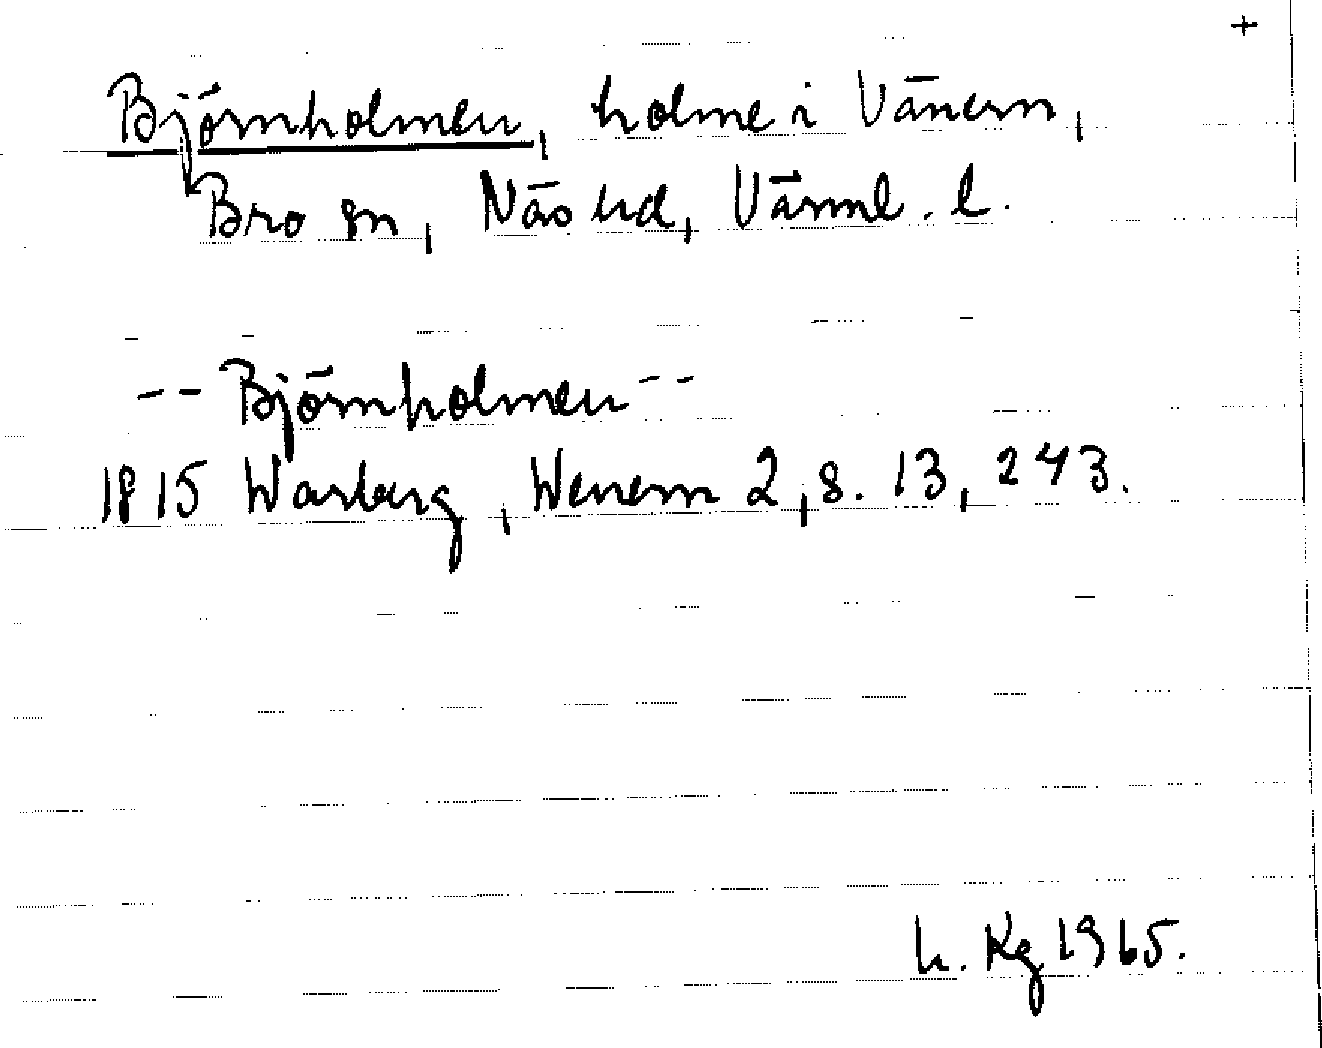 +
Björnholmen, holme i Vänern,
Bro sn, Näs hd, Värml. l.
-- Björnholmen --
1815 Warberg, Wenern 2, s. 13, 243.
h. Kg 1965.